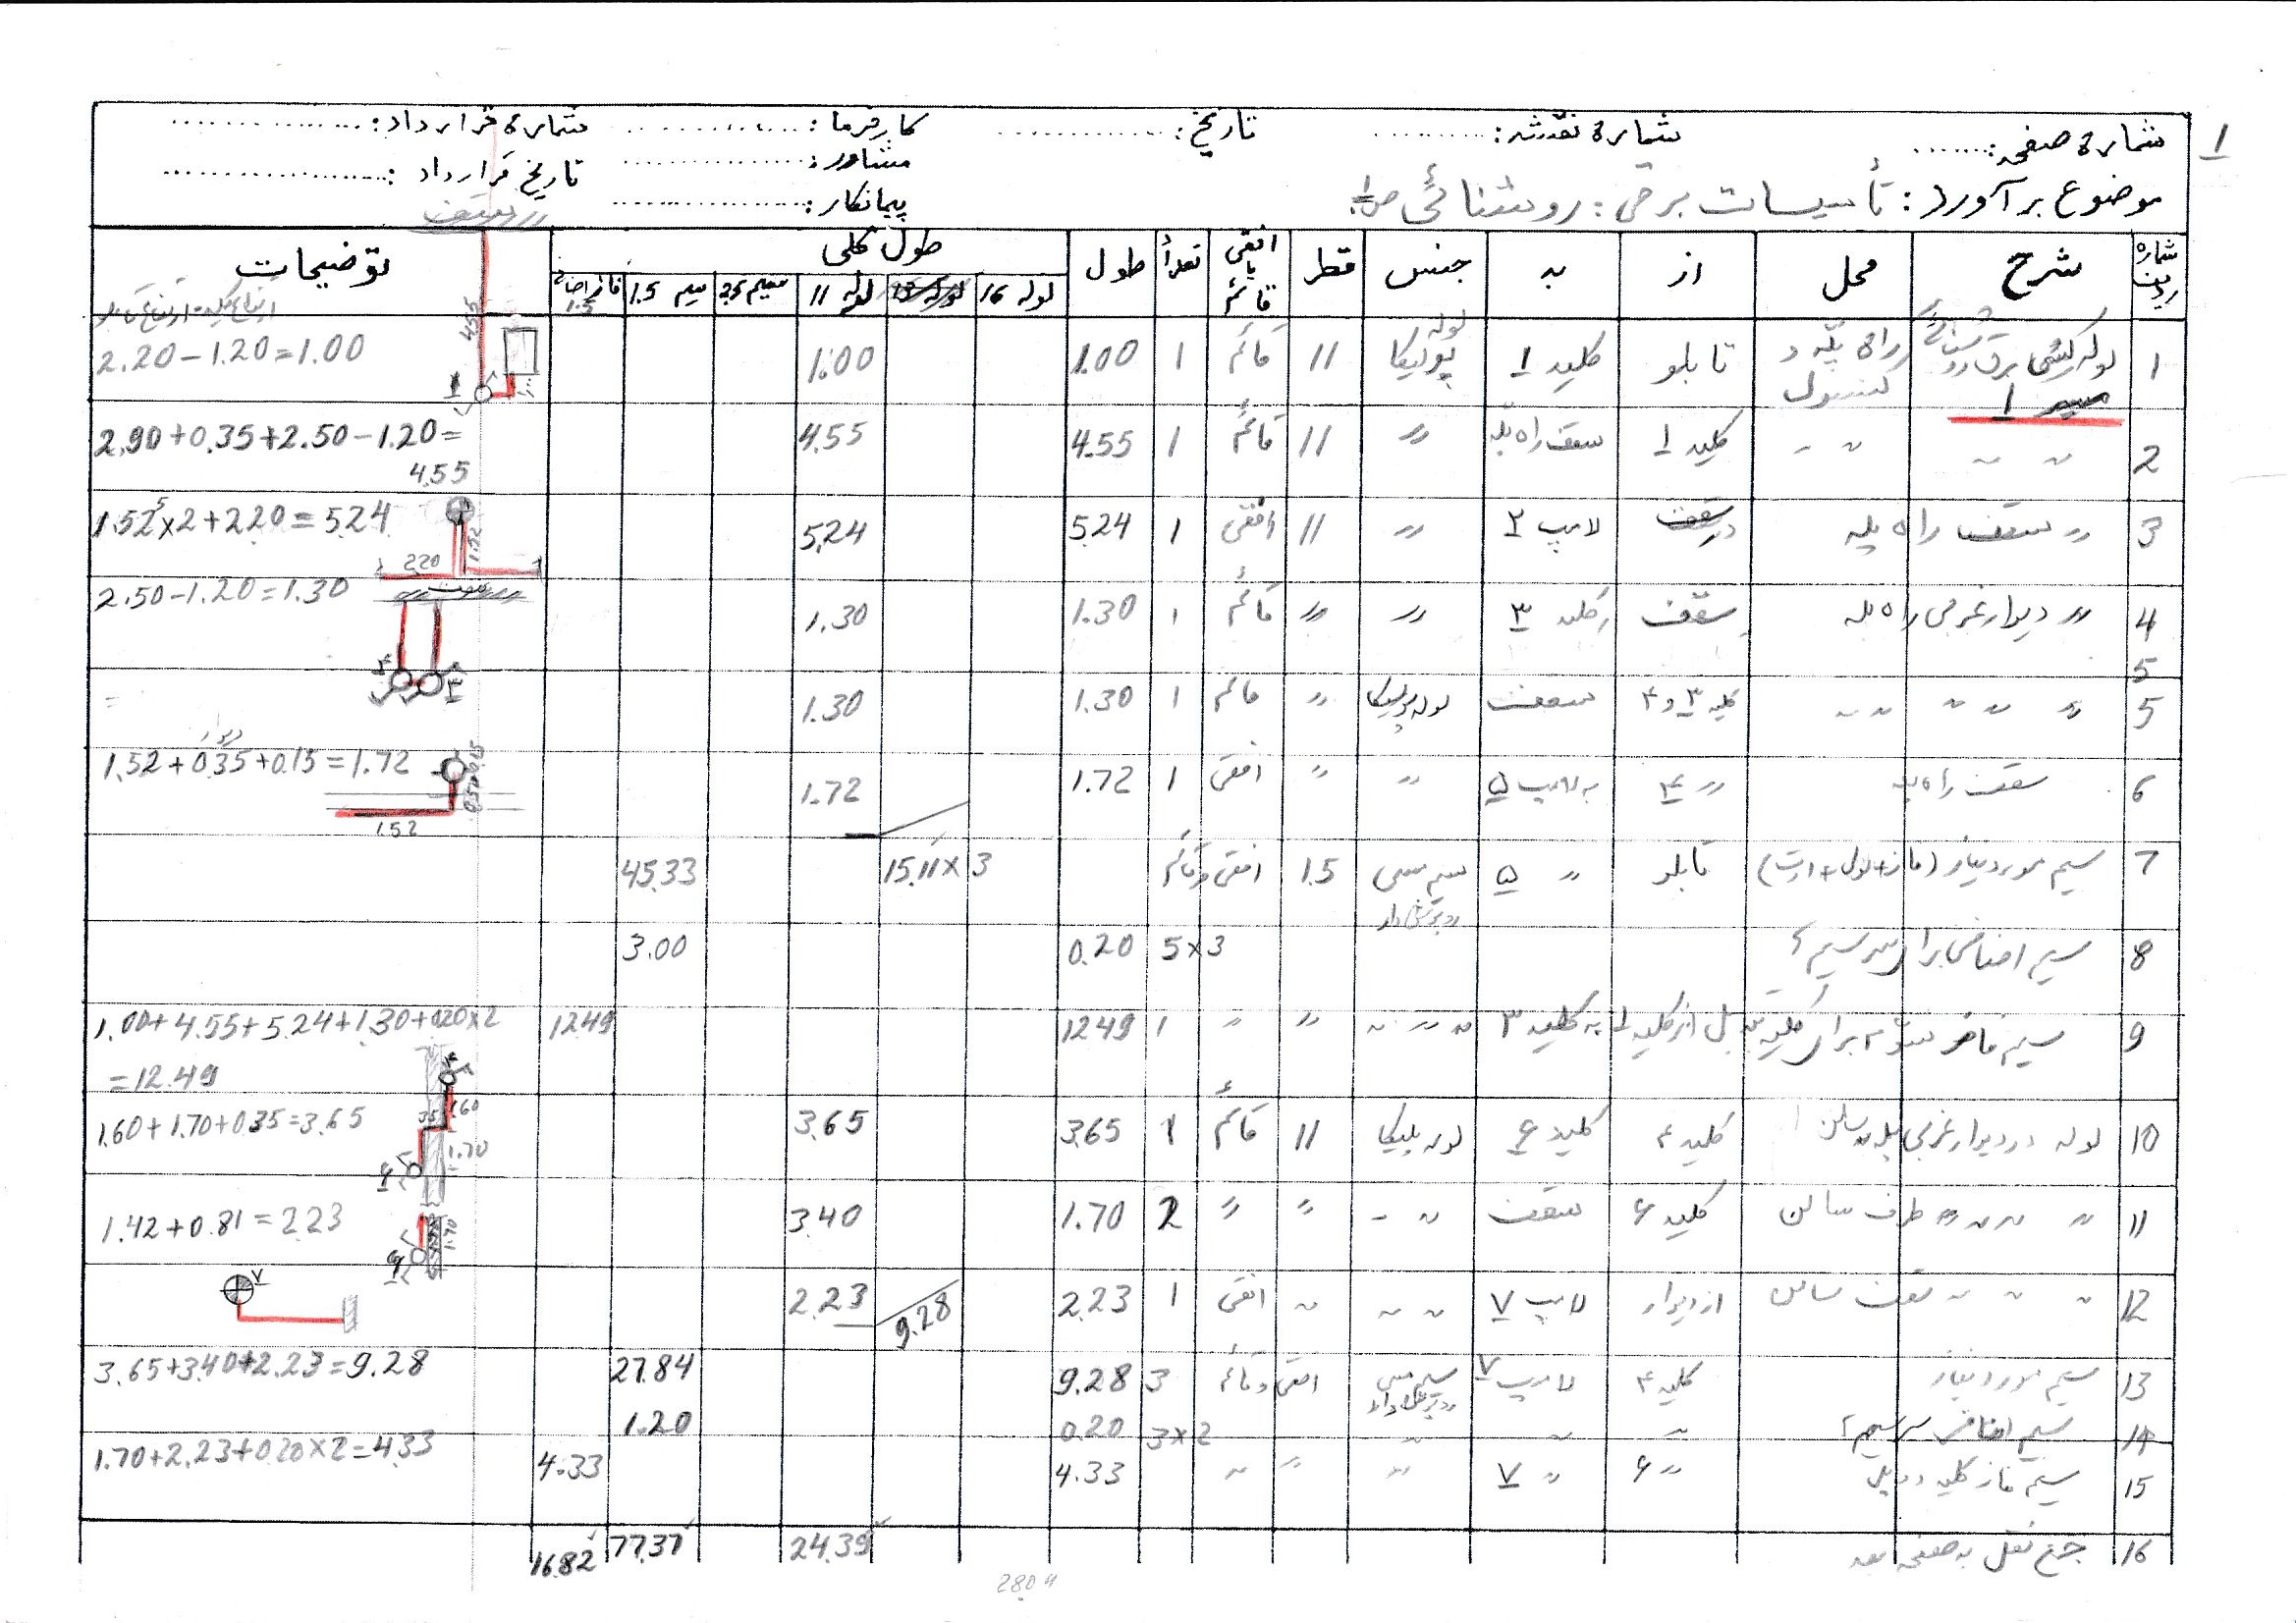 ۱
شماره صفحه: ....... شماره نقشه: ......... تاریخ: ............. کارفرما: ............ شماره قرارداد: ..............
مشاور: .................. تاریخ قرارداد: ....................
موضوع برآورد: تأسیسات برقی: روشنائی ص ۱ پیمانکار: ....................
سقف
شماره ردیف شرح محل از به جنس قطر افقی یا قائم تعداد طول طول کلی توضیحات
لوله 16 لوله 11 سیم 2.5 سیم 1.5 فاز اضافی 1.5
1 لوله کشی برق روشنائی راه پله و کنسول تابلو کلید ۱ لوله پولیکا 11 قائم 1 1.00 1.00 2.20 - 1.20 = 1.00
مسیر 1
4.55
2 〃 〃 〃 - کلید ۱ سقف راه پله 〃 11 قائم 1 4.55 4.55 2.90 + 0.35 + 2.50 - 1.20 =
4.55
3 〃 سقف راه پله در سقف لامپ ۲ 〃 11 افقی 1 5.24 5.24 1.52 x 2 + 2.20 = 5.24
2.20 1.52
4 〃 دیوار غربی راه پله سقف کلید ۳ 〃 〃 قائم 1 1.30 1.30 2.50 - 1.20 = 1.30
سقف
5
5 〃 〃 〃 〃 - کلید ۳ و ۴ سقف لوله پولیکا 〃 قائم 1 1.30 1.30 =
6 سقف راه پله 〃 ۴ به لامپ ۵ 〃 〃 افقی 1 1.72 1.72 1.52 + 0.35 + 0.15 = 1.72
دیوار
1.52
7 سیم مورد نیاز (فاز + نول + ارت) تابلو 〃 ۵ سیم مسی روپوش دار 1.5 افقی و قائم 15.11 x 3 45.33
8 سیم اضافی برای سر سیم 5 x 3 0.20 3.00
9 سیم فاز برای کلید تبدیل از کلید ۱ به کلید ۳ 〃 〃 〃 〃 〃 1 12.49 12.49 1.00 + 4.55 + 5.24 + 1.30 + 0.20 x 2
= 12.49
10 لوله در دیوار غربی پله سالن کلید ۴ کلید ۶ لوله پلیکا 11 قائم 1 3.65 3.65 1.60 + 1.70 + 0.35 = 3.65
35 1.60
1.70
11 〃 〃 〃 〃 طرف سالن کلید ۶ سقف 〃 - 〃 〃 2 1.70 3.40 1.42 + 0.81 = 2.23
12 〃 〃 〃 سقف سالن از دیوار لامپ ۷ 〃 〃 〃 افقی 1 2.23 9.28 2.23
۷
13 سیم مورد نیاز کلید ۴ لامپ ۷ سیم مسی روپوش دار افقی و قائم 3 9.28 27.84 3.65 + 3.40 + 2.23 = 9.28
14 سیم اضافی سر سیم 〃 〃 〃 3 x 2 0.20 1.20
15 سیم فاز کلید دوپل 〃 ۶ 〃 ۷ 〃 〃 〃 4.33 4.33 1.70 + 2.23 + 0.20 x 2 = 4.33
16 جمع نقل به صفحه بعد 24.39 77.37 16.82
280 4